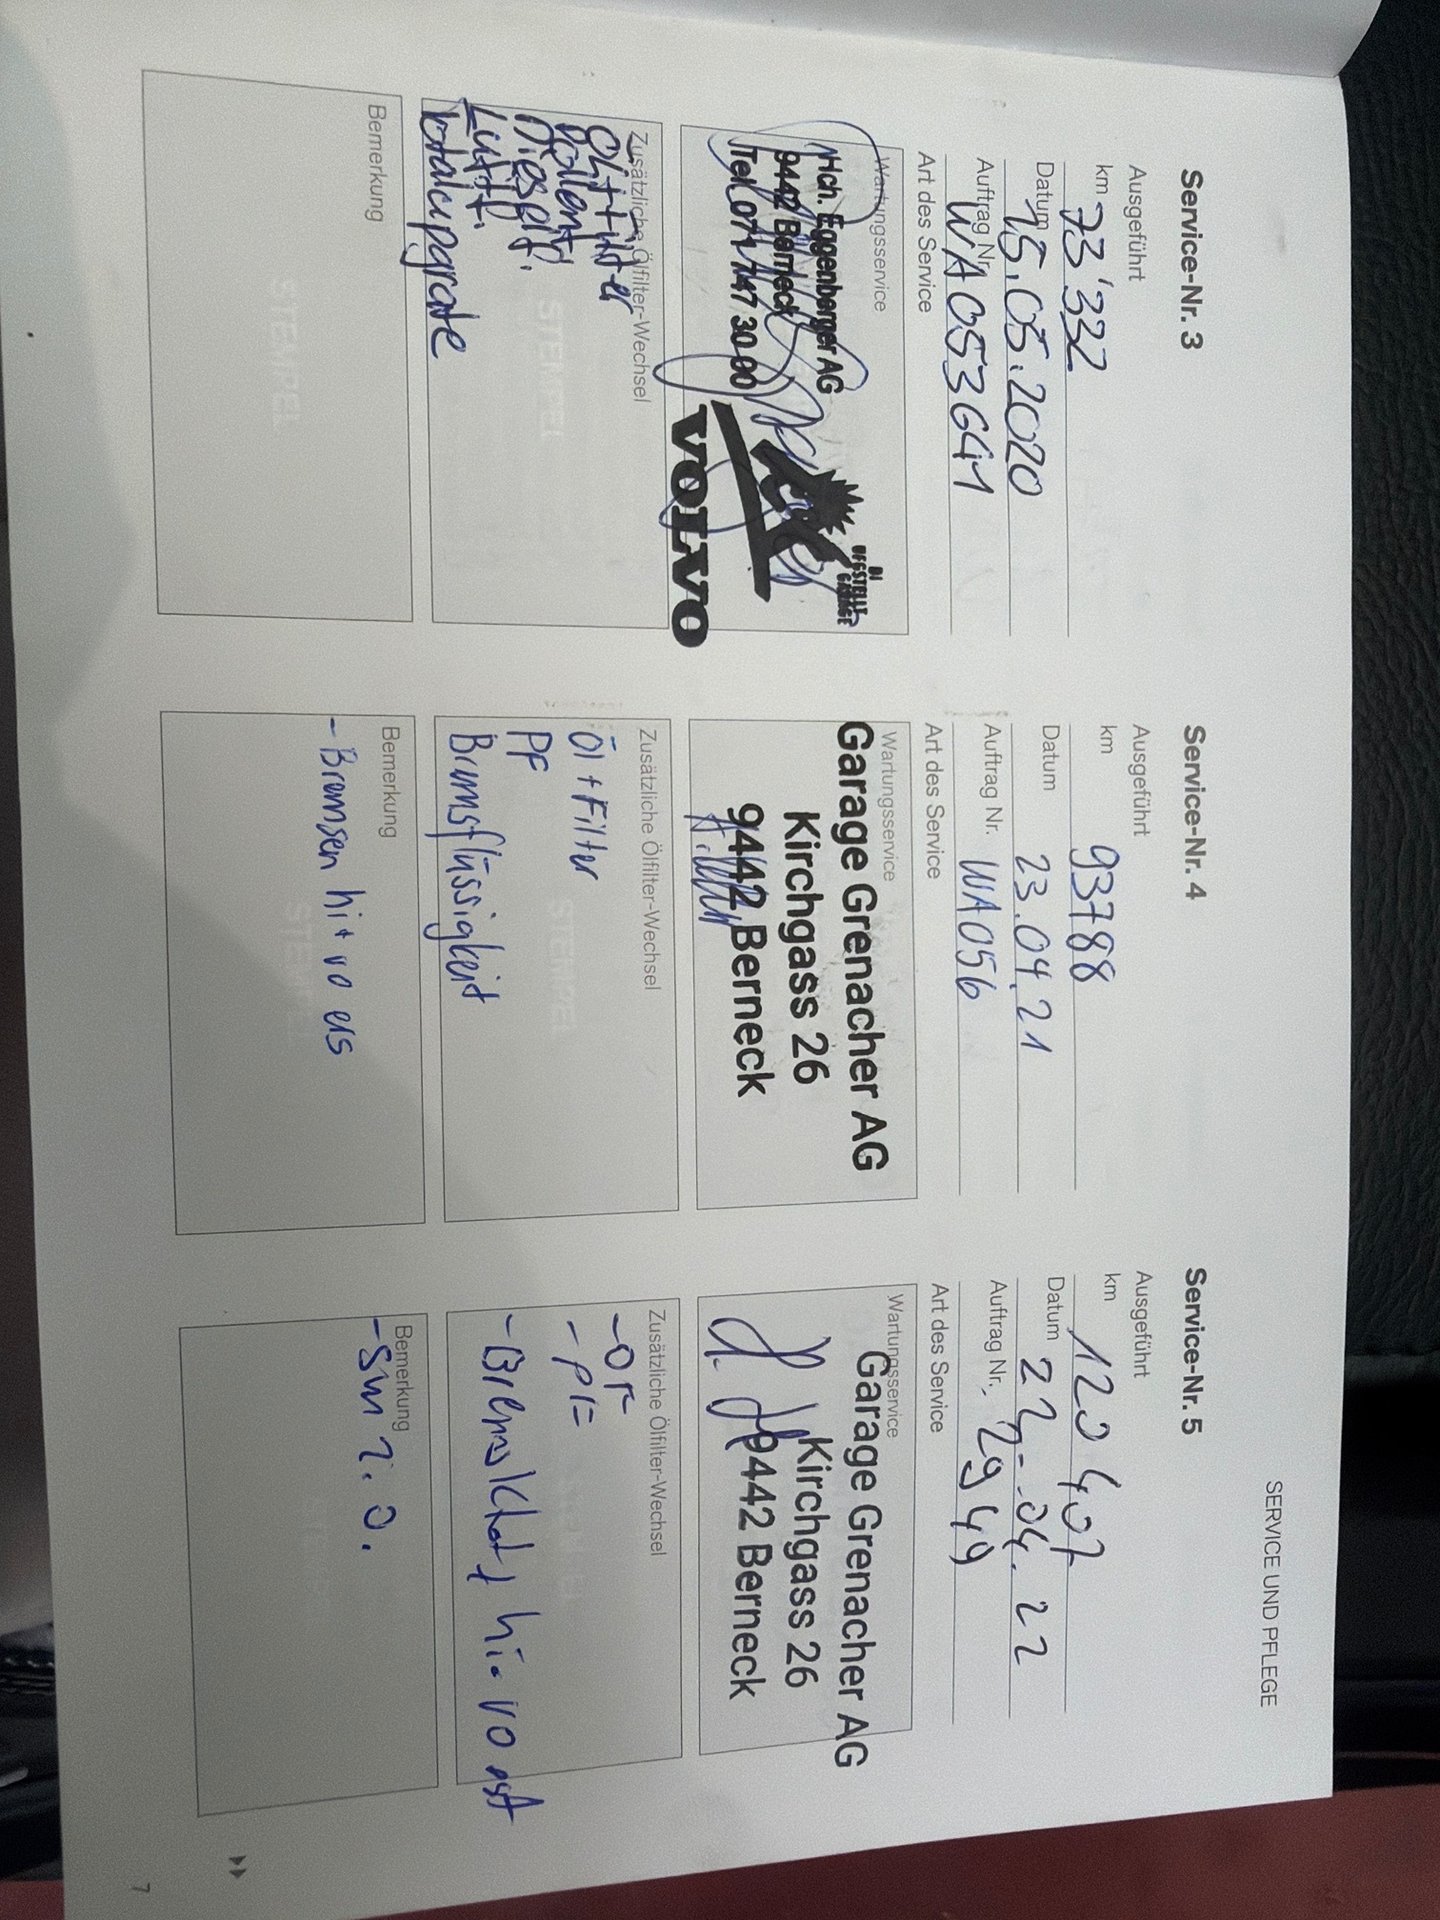 SERVICE UND PFLEGE
Service-Nr. 3
Ausgeführt
km 73'332
Datum 15.05.2020
Auftrag Nr. WA053641
Art des Service
Wartungsservice
Hch. Eggenberger AG
9442 Berneck
Tel. 071 747 30 00
DI
UFGSTELLT
GARAGE
VOLVO
Zusätzliche Ölfilter-Wechsel
Öl+Filter
Pollenf.
Dieself.
Luftf.
Totalupgrade
STEMPEL
Bemerkung
STEMPEL
Service-Nr. 4
Ausgeführt
km 93788
Datum 23.04.21
Auftrag Nr. WA056
Art des Service
Wartungsservice
Garage Grenacher AG
Kirchgass 26
9442 Berneck
Zusätzliche Ölfilter-Wechsel
Öl+Filter
PF
Bremsflüssigkeit
STEMPEL
Bemerkung
- Bremsen hi+vo ers
Service-Nr. 5
Ausgeführt
km 120407
Datum 22.04.22
Auftrag Nr. 2949
Art des Service
Wartungsservice
Garage Grenacher AG
Kirchgass 26
9442 Berneck
Zusätzliche Ölfilter-Wechsel
- OF
- PF
hi. vo
Bemerkung
i.O.
7